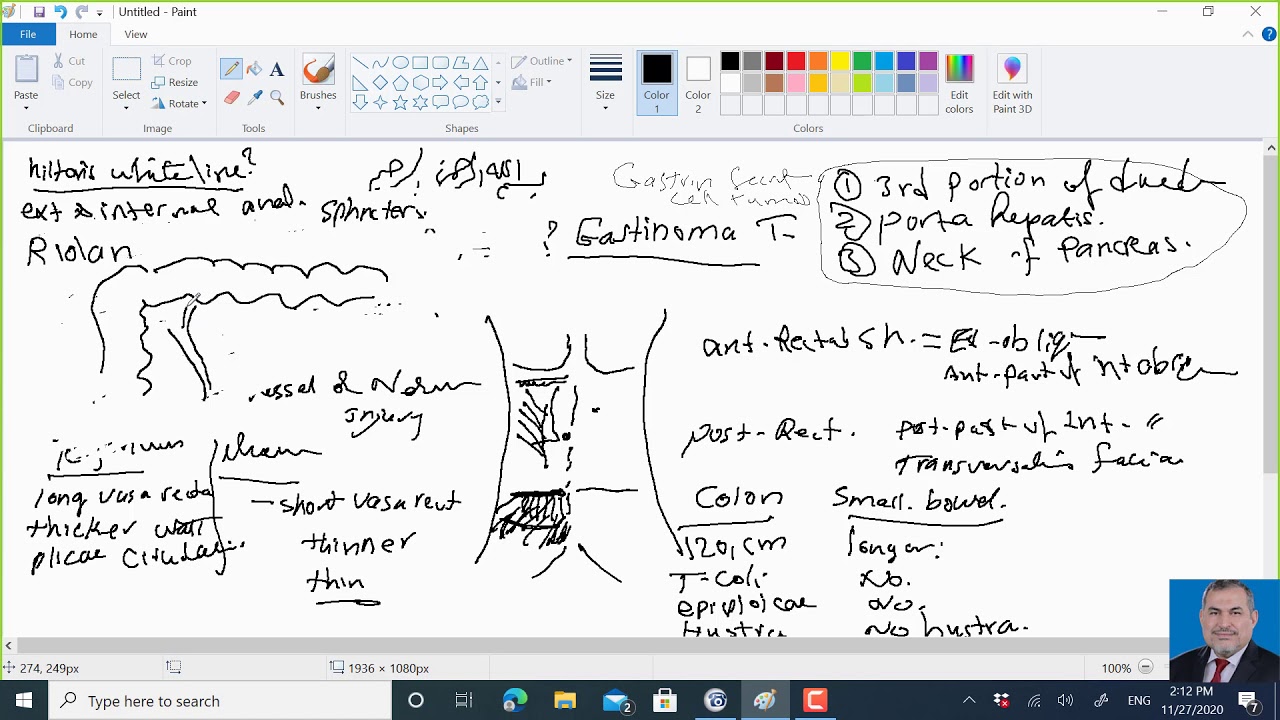 Untitled - Paint
File
Home
View
Paste
Cut
Copy
Clipboard
Select
Crop
Resize
Rotate
Image
Tools
Brushes
Outline
Fill
Shapes
Size
Color 1
Color 2
Edit colors
Edit with Paint 3D
Colors
hilton's white line?
ext & internal anal. sphincters
Riolan
? Gastinoma T
① 3rd portion of
② porta hepatis.
③ Neck of pancreas.
vessel & Nerve
injury
long vasa recta
thicker wall
plicae
short vasa rect
thinner
thin
ant. Rectal sh. =
Ant. part of int obliq
post. Rect.
post. part of int. "
Transversalis facia
Colon
Small. bowel.
120, cm
longer.
T-Coli
No.
epiploicae
No.
Hustra
No hustra.
274, 249px
1936 × 1080px
100%
Type here to search
2
ENG
2:12 PM
11/27/2020
7